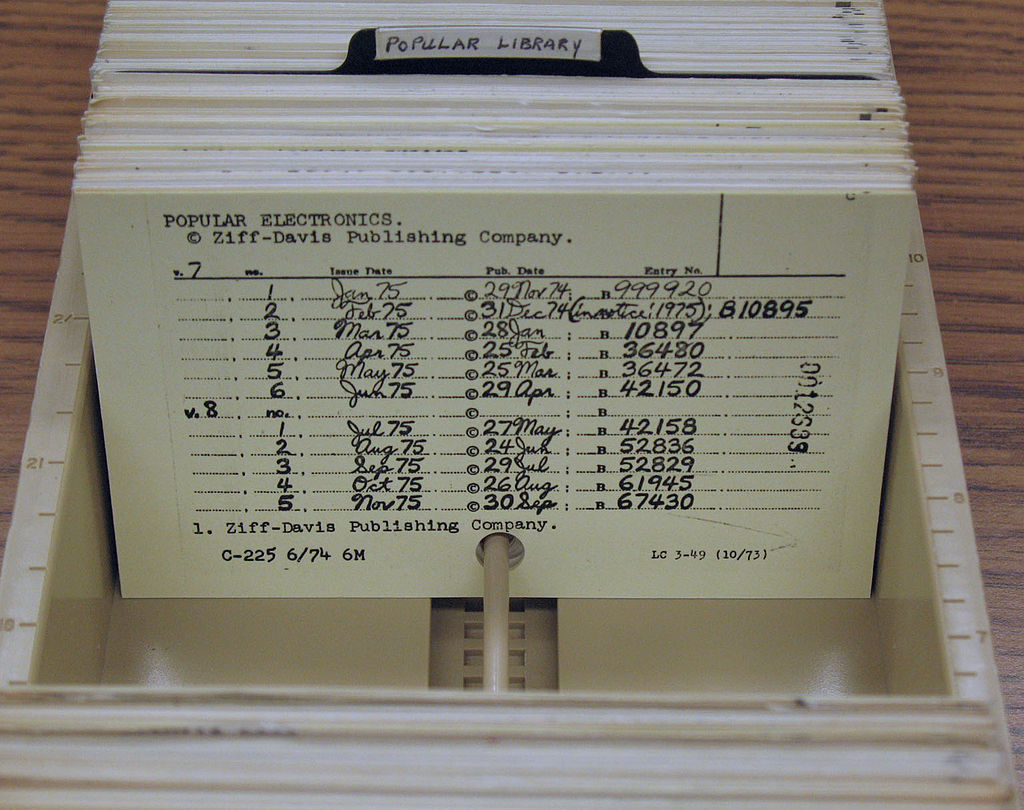 POPULAR LIBRARY
POPULAR ELECTRONICS.
© Ziff-Davis Publishing Company.
v. 7 no. Issue Date Pub. Date Entry No.
1 Jan 75 © 29 Nov 74; B 999920
2 Feb 75 © 31 Dec 74 (in notice: 1975); B10895
3 Mar 75 © 28 Jan ; B 10897
4 Apr 75 © 25 Feb ; B 36480
5 May 75 © 25 Mar ; B 36472
6 Jun 75 © 29 Apr ; B 42150
v. 8 no. © ; B
1 Jul 75 © 27 May ; B 42158
2 Aug 75 © 24 Jun ; B 52836
3 Sep 75 © 29 Jul ; B 52829
4 Oct 75 © 26 Aug ; B 61945
5 Nov 75 © 30 Sep ; B 67430
1. Ziff-Davis Publishing Company.
C-225 6/74 6M LC 3-49 (10/73)
10
9
8
7
21